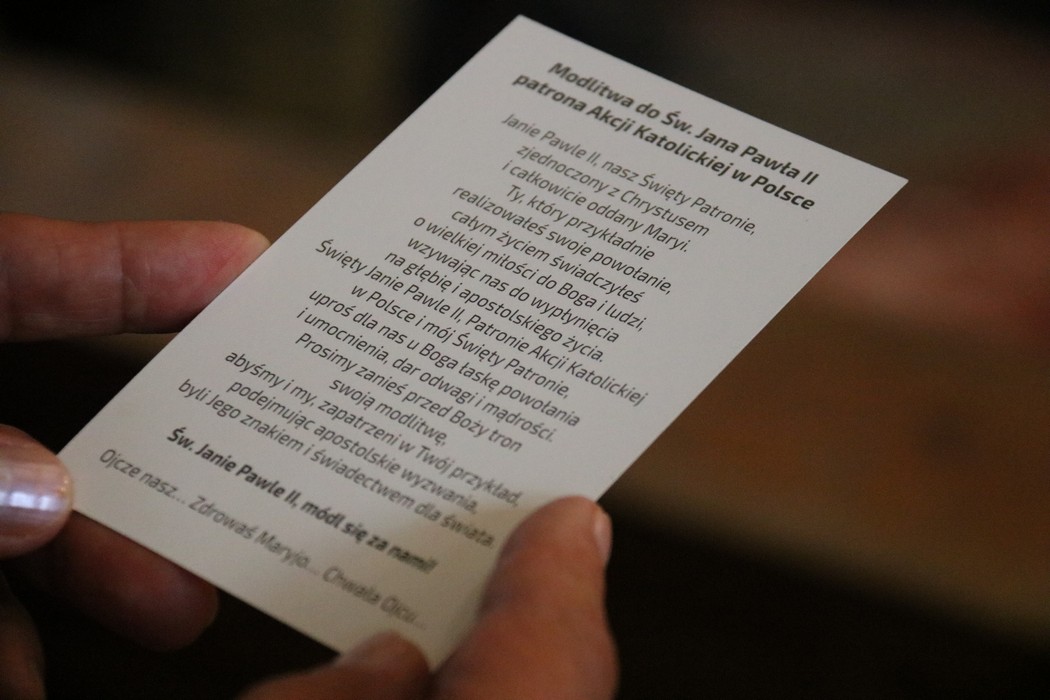 Modlitwa do Św. Jana Pawła II
patrona Akcji Katolickiej w Polsce
Janie Pawle II, nasz Święty Patronie,
zjednoczony z Chrystusem
i całkowicie oddany Maryi.
Ty, który przykładnie
realizowałeś swoje powołanie,
całym życiem świadczyłeś
o wielkiej miłości do Boga i ludzi,
wzywając nas do wypłynięcia
na głębię i apostolskiego życia.
Święty Janie Pawle II, Patronie Akcji Katolickiej
w Polsce i mój Święty Patronie,
uproś dla nas u Boga łaskę powołania
i umocnienia, dar odwagi i mądrości.
Prosimy zanieś przed Boży tron
swoją modlitwę,
abyśmy i my, zapatrzeni w Twój przykład,
podejmując apostolskie wyzwania,
byli Jego znakiem i świadectwem dla świata.
Św. Janie Pawle II, módl się za nami!
Ojcze nasz... Zdrowaś Maryjo... Chwała Ojcu...